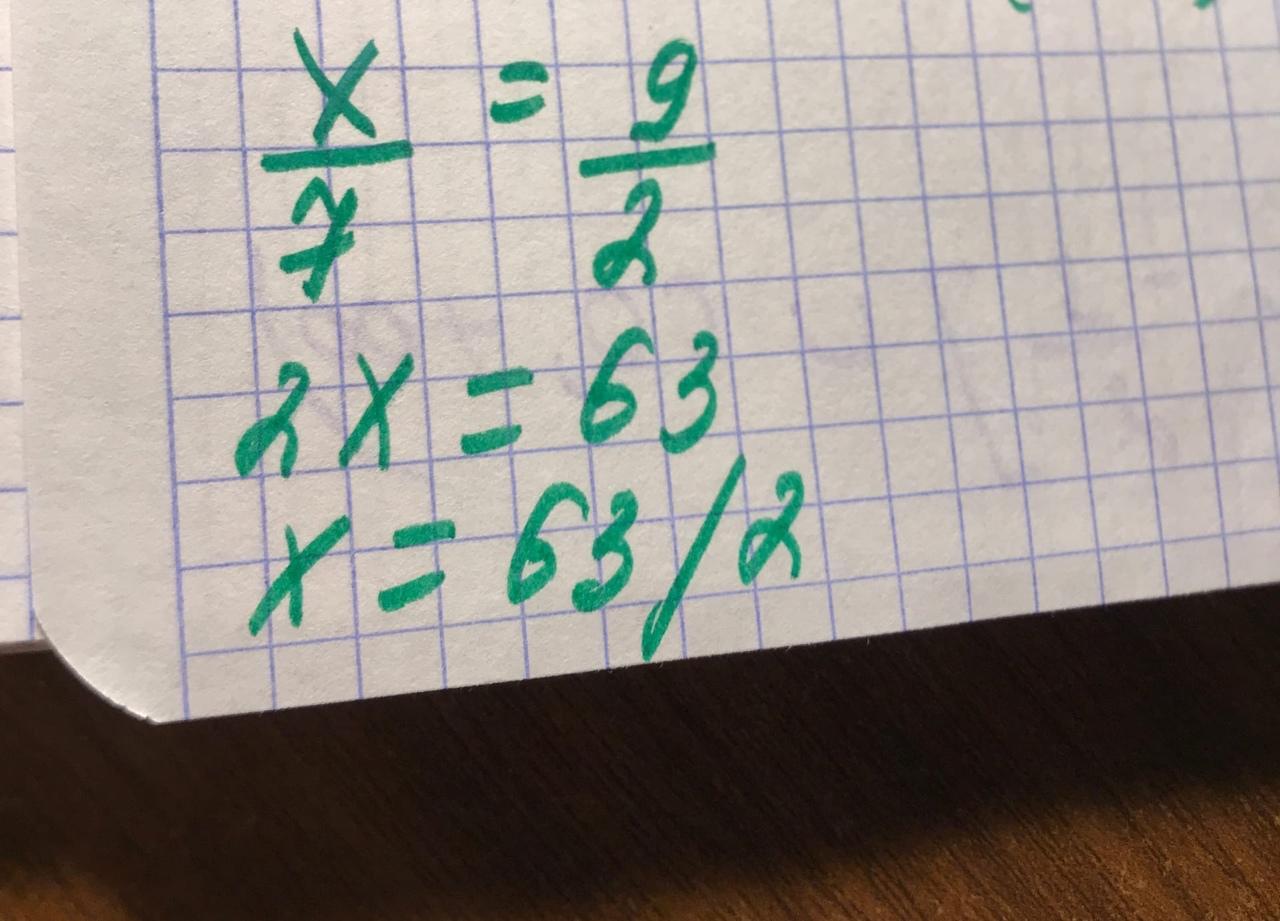 x/7 = 9/2
2x = 63
x = 63/2